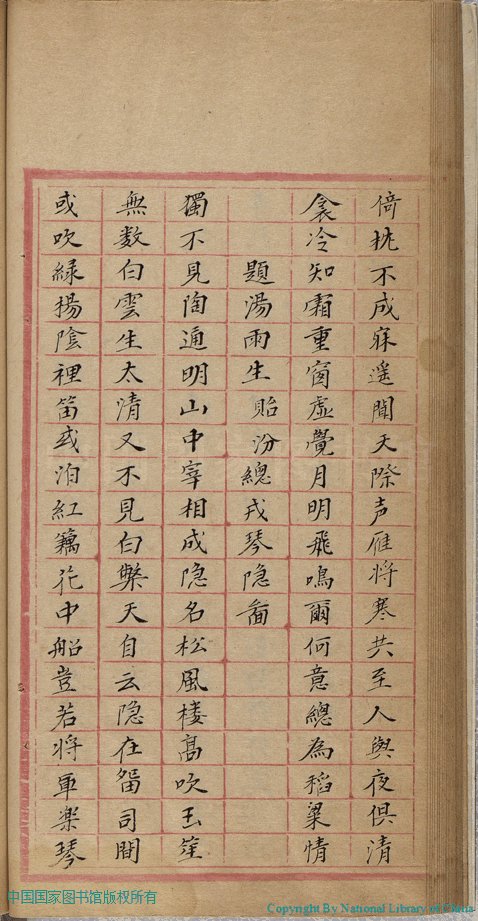 倚枕不成寐遥聞天際声雁将寒共至人與夜俱清
衾冷知霜重窗虛覺月明飛鳴爾何意總為稻粱情
題湯雨生貽汾總戎琴隐啚
獨不見陶通明山中宰相成隐名松風楼高吹玉笙
無數白雲生太清又不見白樂天自云隐在留司間
或吹緑楊陰裡笛或泊紅藕花中船豈若将軍楽琴
中国国家图书馆版权所有
Copyright By National Library of China